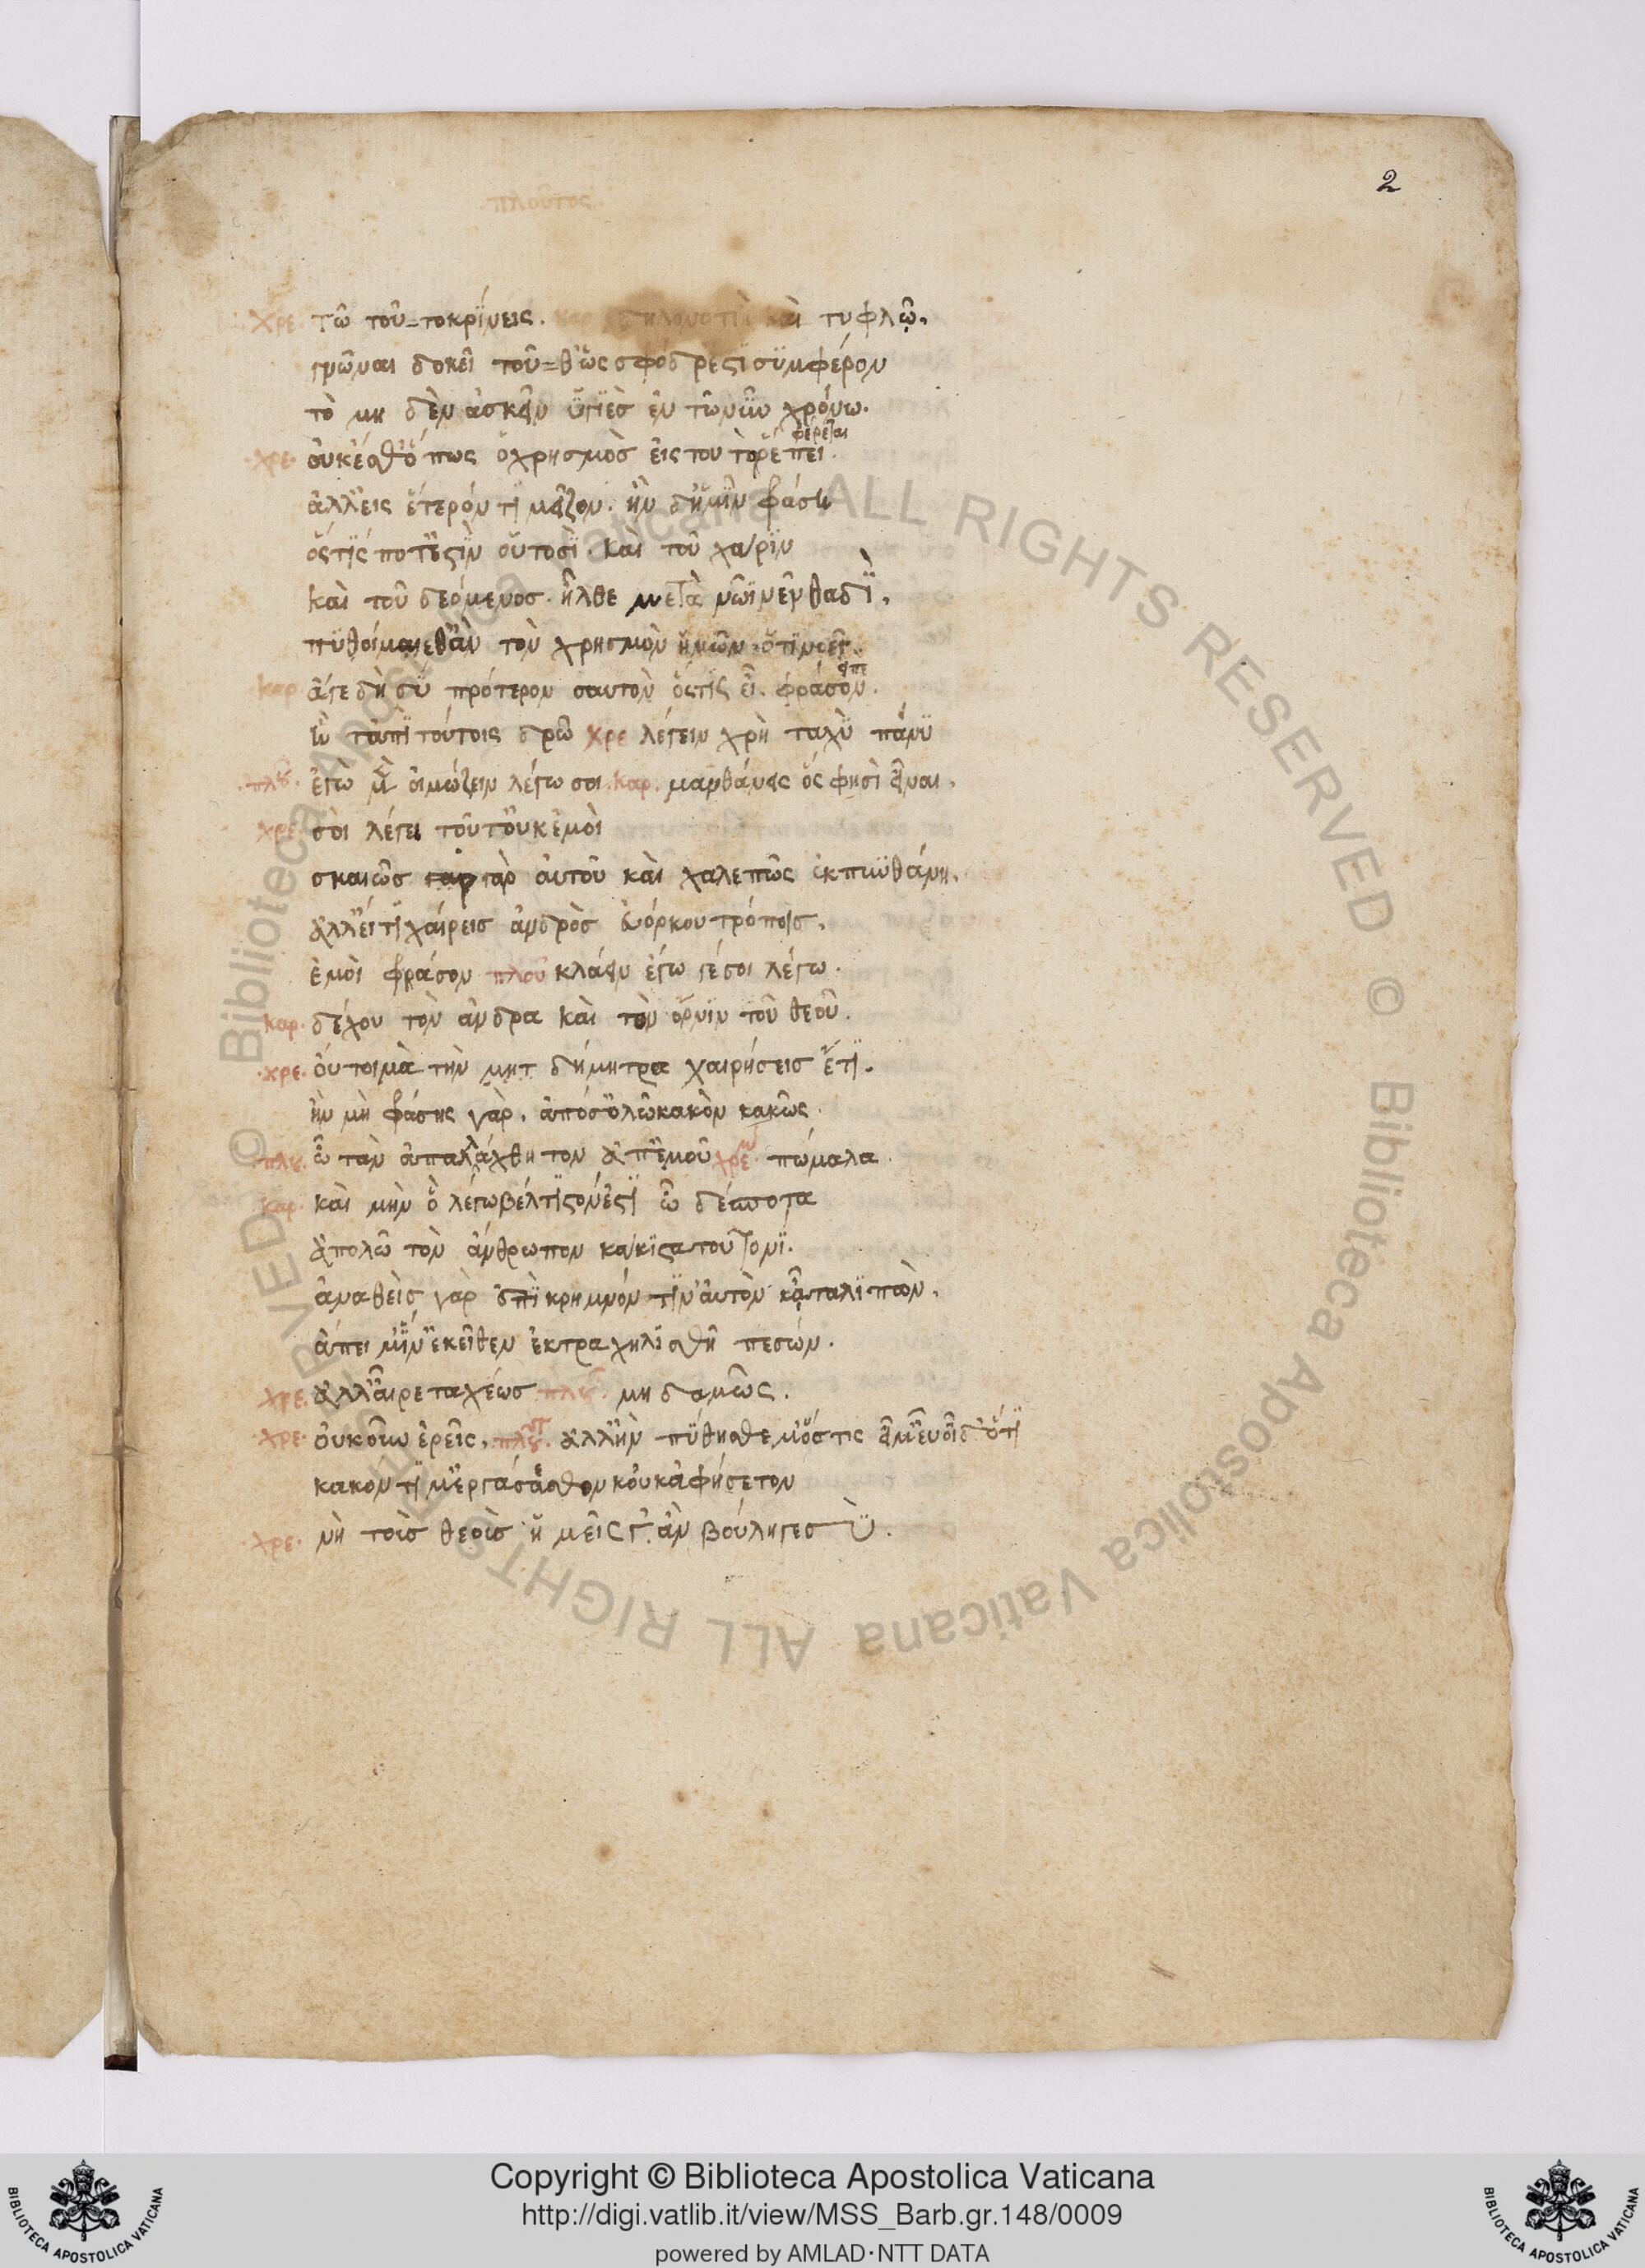 2
πλοῦτος
χρε. τῶ τοῦ=τοκρίνεις. καρ δηλονοτιὴ καὶ τυφλῶ.
γνῶναι δοκεῖ τοῦ=θ' ὡς σφόδρ' ἐστὶ συμφέρον
τὸ μηδὲν ἀσκεῖν ὑγιὲς ἐν τῶ νῦν χρόνω.
φέρεται
χρε. οὐκ ἔσθ' ὅπως ὁ χρησμὸσ εἰς τουτὸ ῥέπει.
ἀλλ' εἰς ἕτερόν τι μεῖζον. ἢν δ' ἡμῖν φάσῃ
ὅστις ποτ' ἐστὶν οὑτοσὶ. καὶ τοῦ χάριν
καὶ τοῦ δεόμενοσ ἦλθε μετὰ νῶϊν ἐνθαδὶ.
πυθοίμεθ' ἂν τὸν χρησμὸν ἡμῶν ὅτι νοεῖ.
εἰπὲ
καρ ἄγε δὴ σὺ πρότερον σαυτὸν ὅστις εἶ φράσον.
ἢ τἀπὶ τούτοις δρῶ χρε λέγειν χρὴ ταχὺ πάνυ
πλου. ἐγὼ μὲν οἰμώζειν λέγω σοι. καρ. μανθάνεις ὅς φησὶ εἶναι.
χρε σοὶ λέγει τοῦτ' οὐκ ἐμοὶ
σκαιῶσ γαρ γὰρ αὐτοῦ καὶ χαλεπῶς ἐκπυνθάνη.
ἀλλ' εἴ τι χαίρεισ ἀνδρὸσ εὐόρκου τρόποισ.
ἐμοὶ φράσον πλοῦ κλάειν ἔγωγέ σοι λέγω.
καρ. δέχου τὸν ἄνδρα καὶ τὸν ὄρνιν τοῦ θεοῦ.
χρε. οὔτοι μὰ τὴν μητ δήμητρα χαιρήσεισ ἔτι.
ἢν μὴ φάσης γὰρ. ἀπό σ' ὀλῶ κακὸν κακῶς.
πλου. ὦ τὰν ἀπαλλάχθητον ἀπ' ἐμοῦ χρε πώμαλα.
καρ. καὶ μὴν ὃ λέγω βέλτιστόν ἐστι ὦ δέσποτα
ἀπολῶ τὸν ἄνθρωπον κάκιστα τουτονί.
ἀναθεὶς γὰρ ἐπὶ κρημνόν τιν' αὐτὸν καταλιπὼν.
ἄπειμ' ἵν' ἐκεῖθεν ἐκτραχηλισθῆ πεσών.
χρε. ἀλλ' αἶρε ταχέωσ πλου. μηδαμῶς.
χρε. οὐκοῦν ἐρεῖς. πλου. ἀλλ' ἢν πύθησθέ μ' ὅστις εἴμ' εὖ οἶδ' ὅτι
κακόν τι μ' ἐργάσασθον κοὐκ ἀφήσετον
χρε. νὴ τοὺσ θεοὺσ ἡμεῖς γ'. ἂν βούλη γε σύ.
Copyright © Biblioteca Apostolica Vaticana
http://digi.vatlib.it/view/MSS_Barb.gr.148/0009
powered by AMLAD·NTT DATA